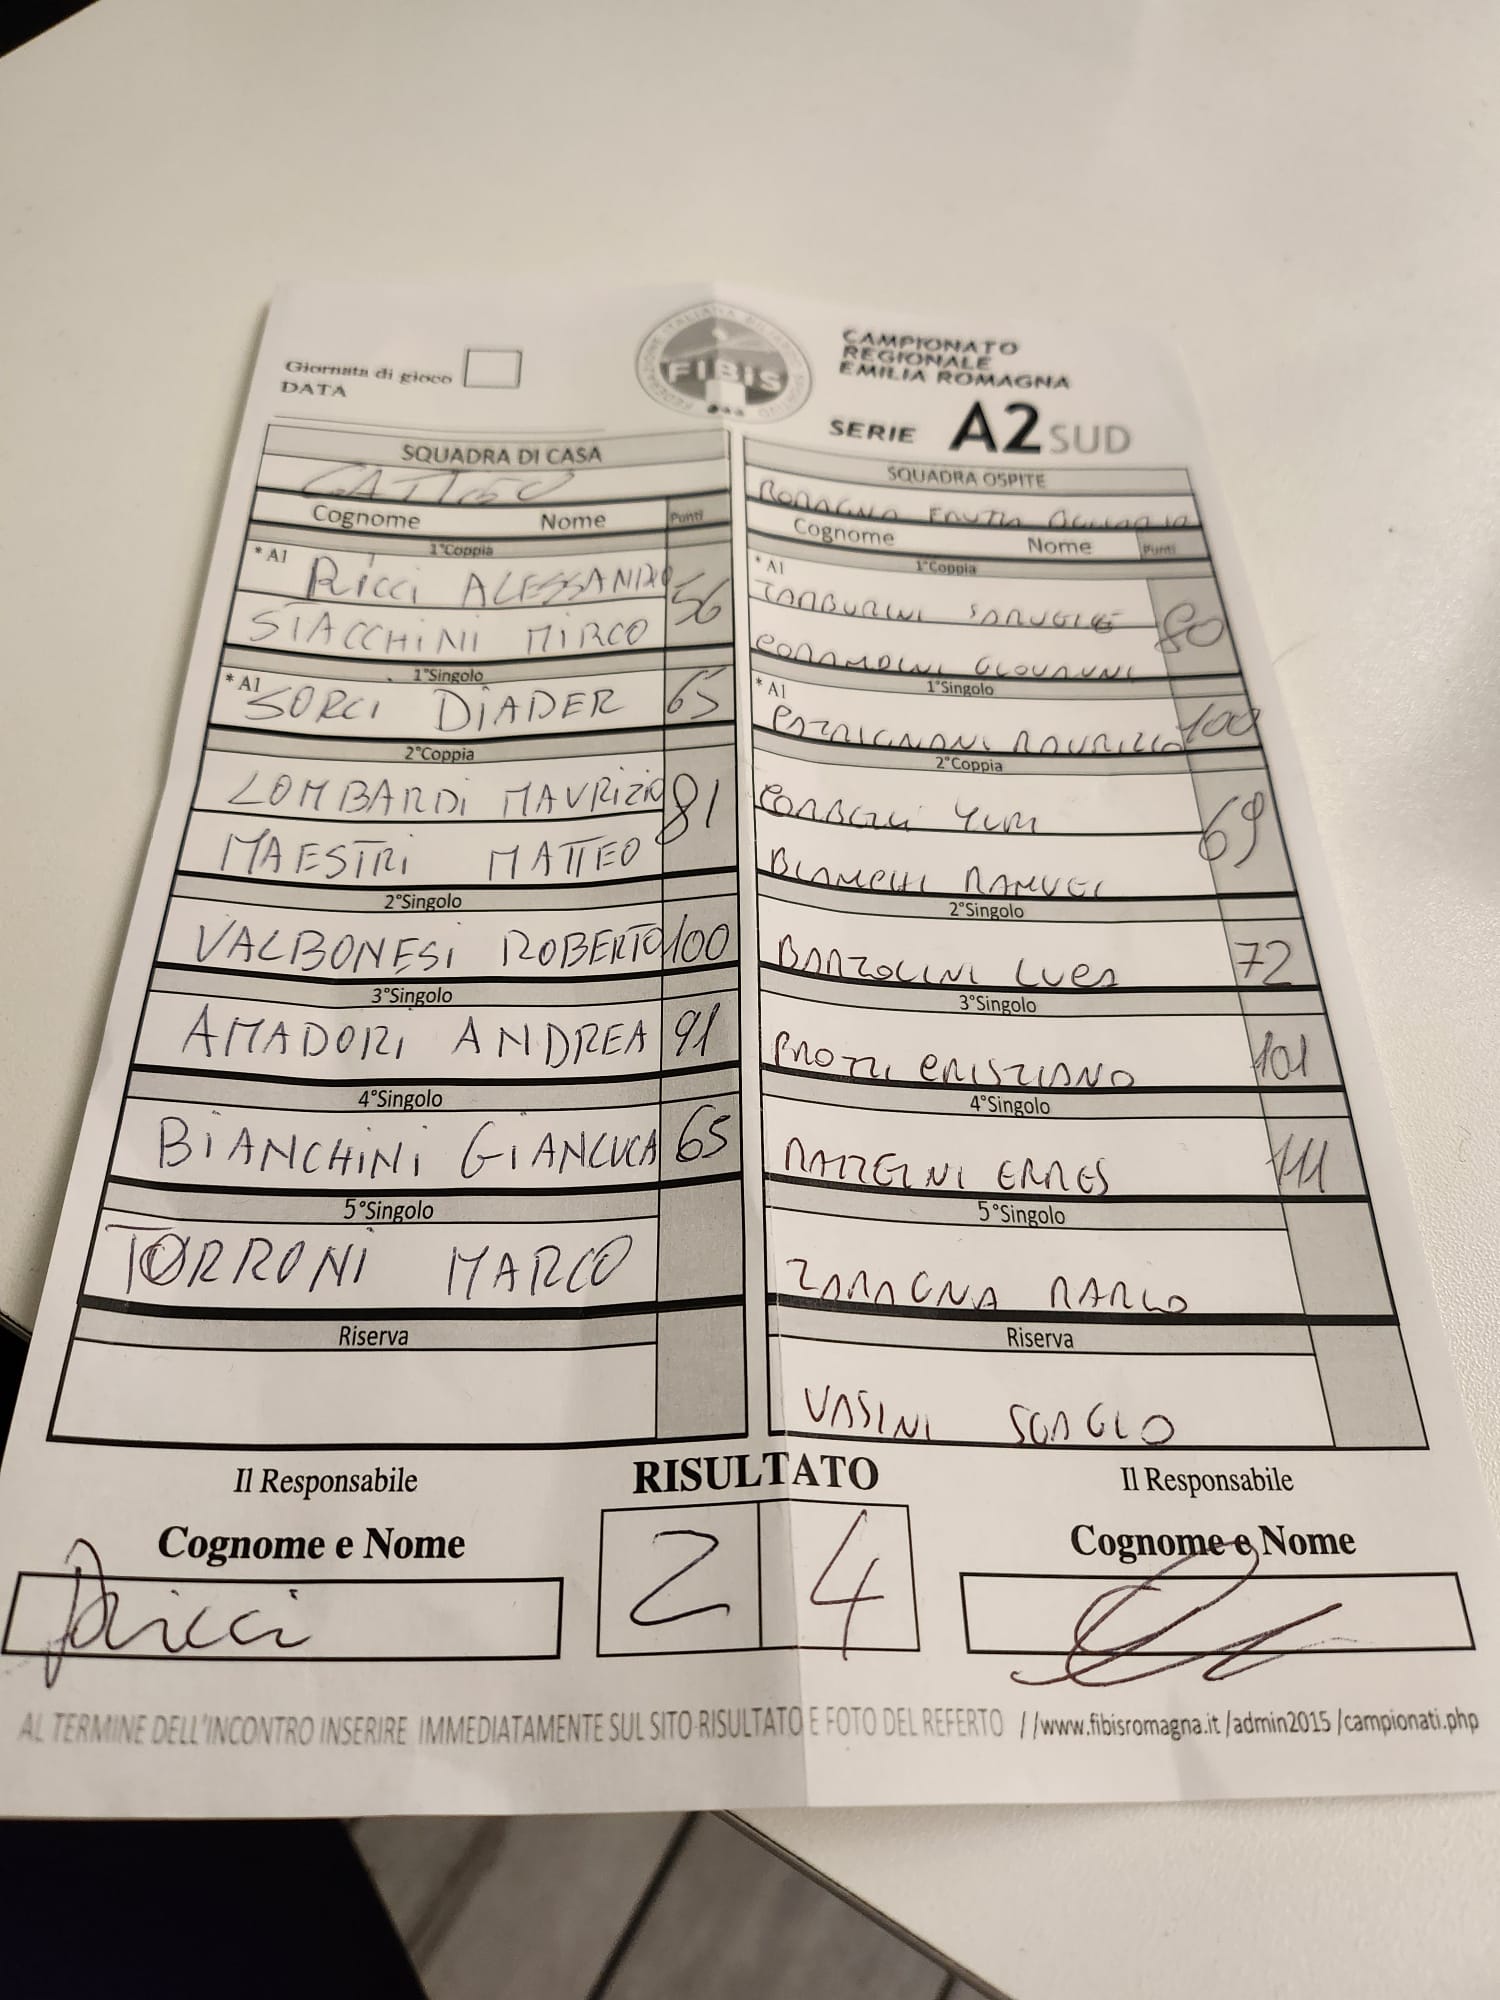 Giornata di gioco
DATA
FEDERAZIONE ITALIANA BILIARDO SPORTIVO
FIBIS
CAMPIONATO
REGIONALE
EMILIA ROMAGNA
SERIE A2 SUD
SQUADRA DI CASA
GATTEO
Cognome Nome Punti
1°Coppia
*A1 RICCI ALESSANDRO 56
STACCHINI MIRCO
1°Singolo
*A1 SORCI DIADER 65
2°Coppia
LOMBARDI MAURIZIO 81
MAESTRI MATTEO
2°Singolo
VALBONESI ROBERTO 100
3°Singolo
AMADORI ANDREA 91
4°Singolo
BIANCHINI GIANLUCA 65
5°Singolo
TORRONI MARCO
Riserva
SQUADRA OSPITE
ROMAGNA
Cognome Nome Punti
1°Coppia
*A1 TAMBURINI 80
GIOVANNI
1°Singolo
*A1 PATRIGNANI MAURIZIO 100
2°Coppia
YURI 69
BIANCHI MANUEL
2°Singolo
BARZOLINI LUCA 72
3°Singolo
CRISTIANO 101
4°Singolo
MAZZINI ERMES 111
5°Singolo
ZAMAGNA MARCO
Riserva
VASINI SERGIO
Il Responsabile
Cognome e Nome
Ricci
RISULTATO
2 4
Il Responsabile
Cognome e Nome
AL TERMINE DELL'INCONTRO INSERIRE IMMEDIATAMENTE SUL SITO RISULTATO E FOTO DEL REFERTO //www.fibisromagna.it /admin2015 /campionati.php